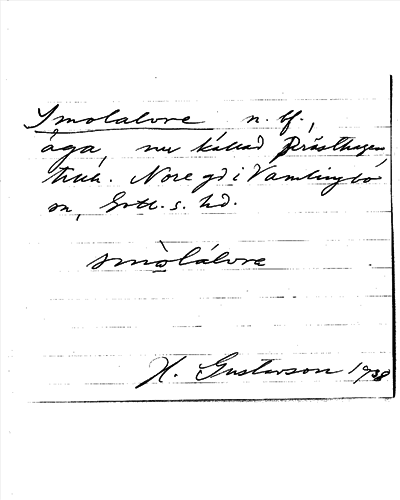 Smolalvre n. bf.,
åga, nu kallad Prästhagen,
tillh. Nore gd i Vamlingbo
sn, Gotl. s. hd.
smòlálvrα
H. Gustavson 1938